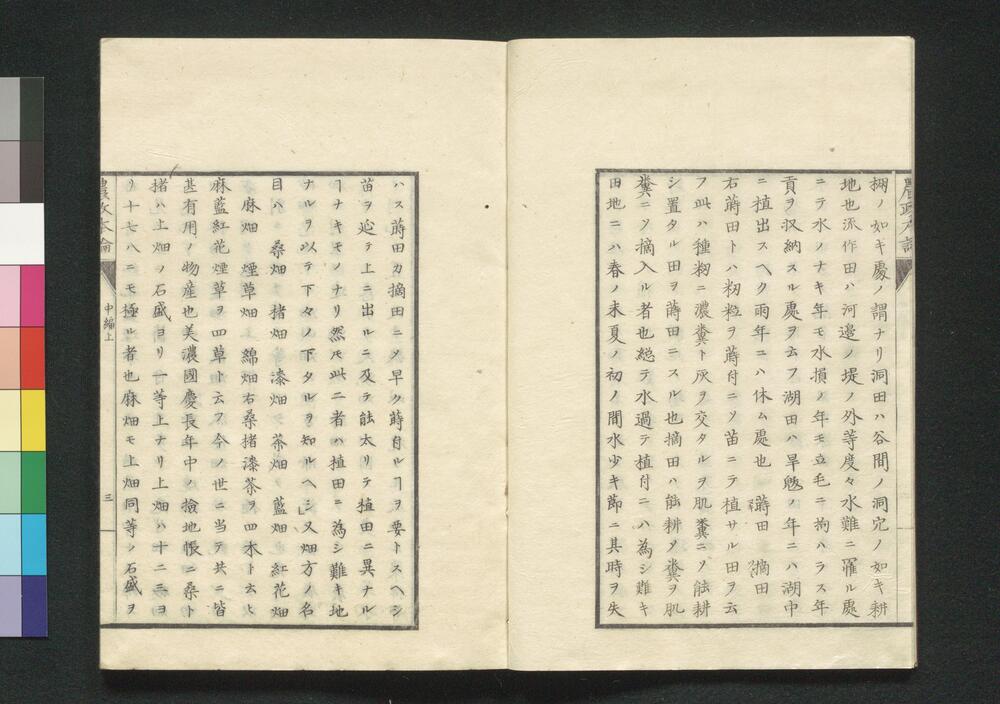 棚ノ如キ處ノ謂ナリ洞田ハ谷間ノ洞穴ノ如キ耕
地也流作田ハ河邉ノ堤ノ外等度々水難ニ罹ル處
ニテ水ノナキ年モ水損ノ年モ立毛ニ拘ハラス年
貢ヲ収納スル處ヲ云フ湖田ハ旱魃ノ年ニハ湖中
ニ植出スヘク雨年ニハ休ム處也 蒔田 摘田
右蒔田トハ籾粒ヲ蒔付ニ〆苗ニテ植サル田ヲ云
フ此ハ種籾ニ濃糞ト灰ヲ交タルヲ肌糞ニ〆能耕
シ置タル田ヲ蒔田ニスル也摘田ハ能耕〆糞ヲ肌
糞ニ〆摘入ル者也総テ水過テ植付ニハ為シ難キ
田地ニハ春ノ末夏ノ初ノ間水少キ節ニ其時ヲ失
ハス蒔田カ摘田ニ〆早ク蒔付ルヿヲ要トスヘシ
苗ヲ延テ上ニ出ルニ及テ能太リテ植田ニ異ナル
ヿナキモノナリ然𪜈此二者ハ植田ニ為シ難キ地
ナルヲ以テ下々ノ下タルヲ知ルヘシ又畑方ノ名
目ハ 桑畑 楮畑 漆畑 茶畑 藍畑 紅花畑
麻畑 煙草畑 綿畑右桑楮漆茶ヲ四木ト云ヒ
麻藍紅花煙草ヲ四草ト云フ今ノ世ニ当テ共ニ皆
甚有用ノ物産也美濃國慶長年中ノ撿地帳ニ桑ト
楮ハ上畑ノ石盛ヨリ一等上ナリ上畑ハ十二三ヨ
リ十七八ニモ極ル者也麻畑モ上畑同等ノ石盛ヲ
農政本論
中編上
三